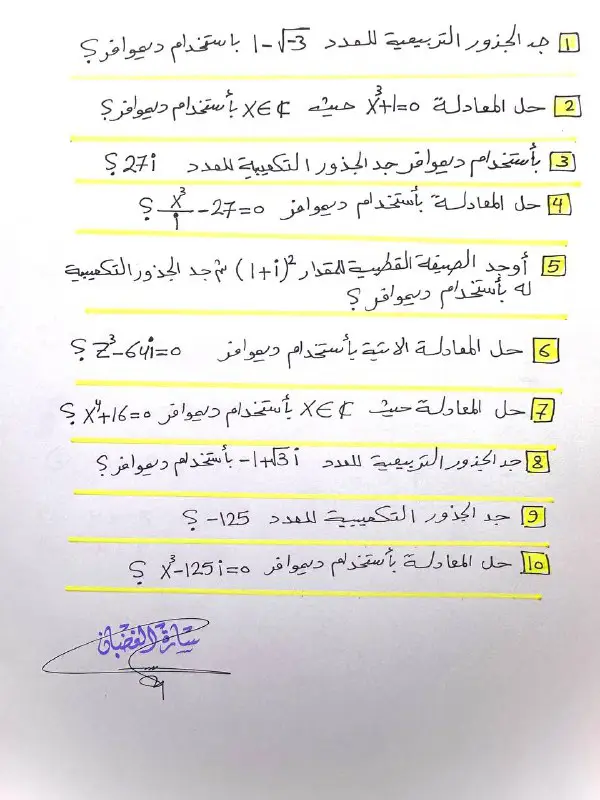 1 جد الجذور التربيعية للعدد 1-√-3 باستخدام ديموافر؟
2 حل المعادلة x³+1=0 حيث x∈₵ بأستخدام ديموافر؟
3 بأستخدام ديموافر جد الجذور التكعيبية للعدد 27i ؟
4 حل المعادلة بأستخدام ديموافر x³/i -27=0 ؟
5 أوجد الصيغة القطبية للمقدار (1+i)² ثم جد الجذور التكعيبية
له بأستخدام ديموافر ؟
6 حل المعادلة الاتية بأستخدام ديموافر Z³-64i=0 ؟
7 حل المعادلة حيث x∈₵ بأستخدام ديموافر x⁴+16=0 ؟
8 جد الجذور التربيعية للعدد -1+√3 i بأستخدام ديموافر؟
9 جد الجذور التكعيبية للعدد -125 ؟
10 حل المعادلة بأستخدام ديموافر x³-125i=0 ؟
سارة الغضبان